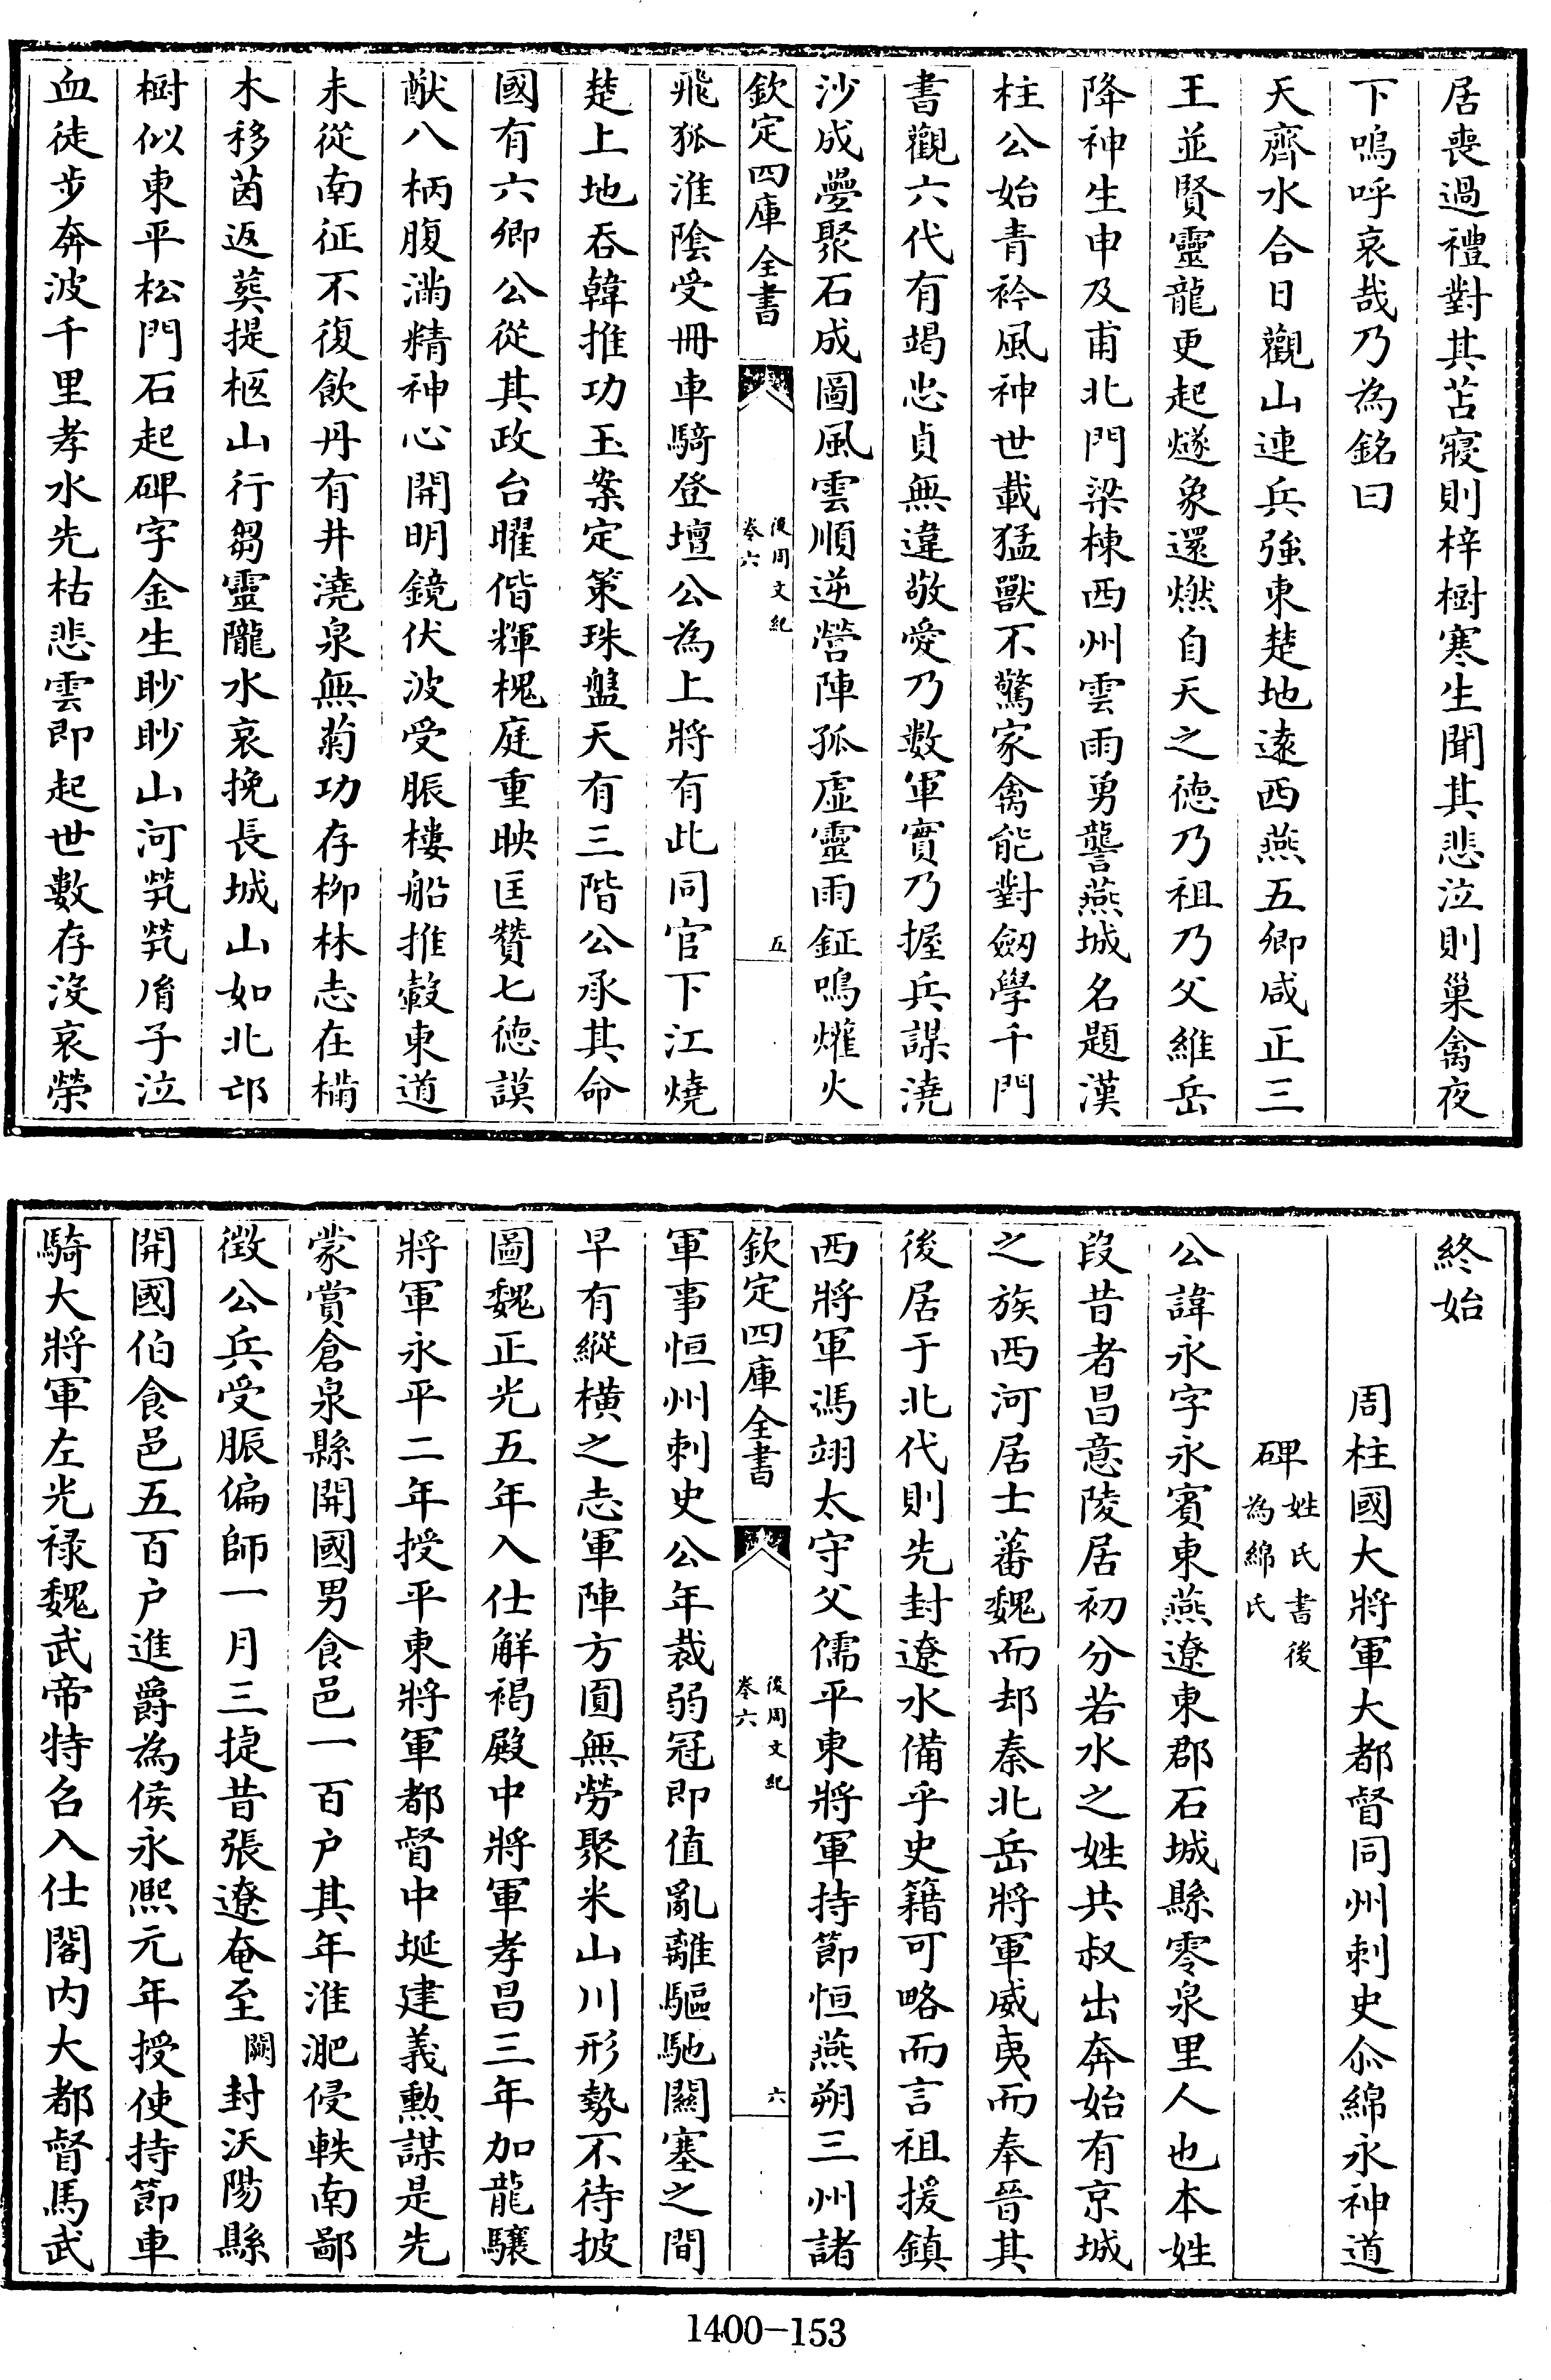 居喪過禮對其苫寢則梓樹寒生聞其悲泣則巢禽夜
下嗚呼哀哉乃為銘曰
天齊水合日觀山連兵強東楚地遠西燕五卿咸正三
王並賢靈龍更起燧象還燃自天之德乃祖乃父維岳
降神生申及甫北門梁棟西州雲雨勇讋燕城名題漢
柱公始青衿風神世載猛獸不驚家禽能對劒學千門
書觀六代有竭忠貞無違敬愛乃數軍實乃握兵謀澆
沙成壘聚石成圖風雲順逆營陣孤虛靈雨鉦鳴爟火
欽定四庫全書
後周文紀
卷六
五
飛狐淮陰受冊車騎登壇公為上將有此同官下江燒
楚上地吞韓推功玉案定策珠盤天有三階公承其命
國有六卿公從其政台曜偕輝槐庭重映匡贊七德謨
猷八柄腹滿精神心開明鏡伏波受脤樓船推轂東道
未從南征不復飲丹有井澆泉無菊功存柳林志在楠
木移茵返葬提柩山行芻靈隴水哀挽長城山如北邙
樹似東平松門石起碑字金生眇眇山河煢煢胤子泣
血徒步奔波千里孝水先枯悲雲即起世數存沒哀榮
終始
周柱國大將軍大都督同州刺史尒綿永神道
碑姓氏書後為綿氏
公諱永字永賓東燕遼東郡石城縣零泉里人也本姓
段昔者昌意陵居初分若水之姓共叔出奔始有京城
之族西河居士蕃魏而却秦北岳將軍威夷而奉晉其
後居于北代則先封遼水備乎史籍可略而言祖援鎮
西將軍馮翊太守父儒平東將軍持節恒燕朔三州諸
欽定四庫全書
後周文紀
卷六
六
軍事恒州刺史公年裁弱冠即值亂離驅馳關塞之間
早有縱橫之志軍陣方圓無勞聚米山川形勢不待披
圖魏正光五年入仕解褐殿中將軍孝昌三年加龍驤
將軍永平二年授平東將軍都督中埏建義勲謀是先
蒙賞倉泉縣開國男食邑一百户其年淮淝侵軼南鄙
徵公兵受脤偏師一月三捷昔張遼奄至闕封沃陽縣
開國伯食邑五百户進爵為侯永熙元年授使持節車
騎大將軍左光祿魏武帝特召入仕閤内大都督馬武
1400-153